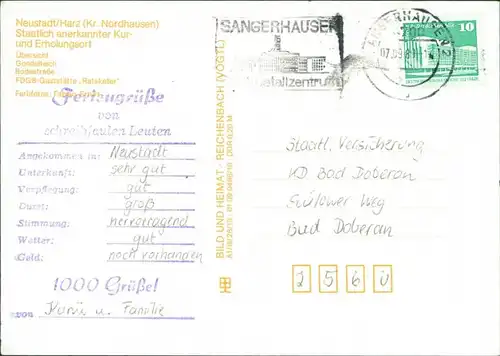 Neustadt/Harz (Kr. Nordhausen)
Staatlich anerkannter Kur-
und Erholungsort
Übersicht
Gondelteich
Rodestraße
FDGB-Gaststätte „Ratskeller"
Feriengrüße
von
schreibfaulen Leuten
Angekommen in: Neustadt
Unterkunft: sehr gut
Verpflegung: gut
Durst: groß
Stimmung: hervorragend
Wetter: gut
Geld: noch vorhanden
1000 Grüße!
von u. Familie
BILD UND HEIMAT · REICHENBACH (VOGTL)
SANGERHAUSEN
10
SANGERHAUSEN 2
Staatl. Versicherung
KD Bad Doberan
Bülower Weg
Bad Doberan
2560